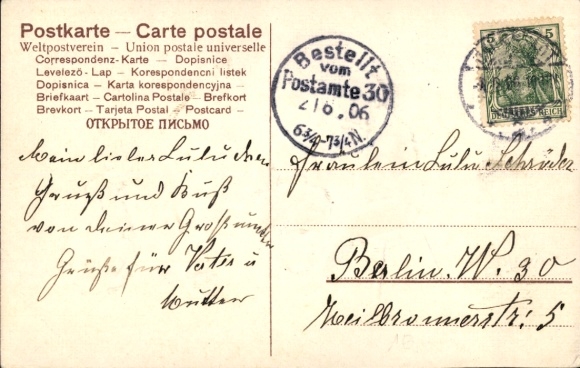 Postkarte — Carte postale
Weltpostverein – Union postale universelle
Correspondenz-Karte – Dopisnice
Levelező-Lap – Korespondencni listek
Dopisnica – Karta korespondencyjna –
Briefkaart – Cartolina Postale – Brefkort
Brevkort – Tarjeta Postal – Postcard –
ОТКРЫТОЕ ПИСЬМО
Bestellt
vom
Postamte 30
21 6. 06
6¾-7¾N.
5
DEUTSCHES REICH
Mein liebes Luluchen
Gruß und Kuß
von deiner Großmutter
Grüße für Vater u
Mutter
Fräulein Lulu Schröder
Berlin. W. 30
Heilbronnerstr: 5